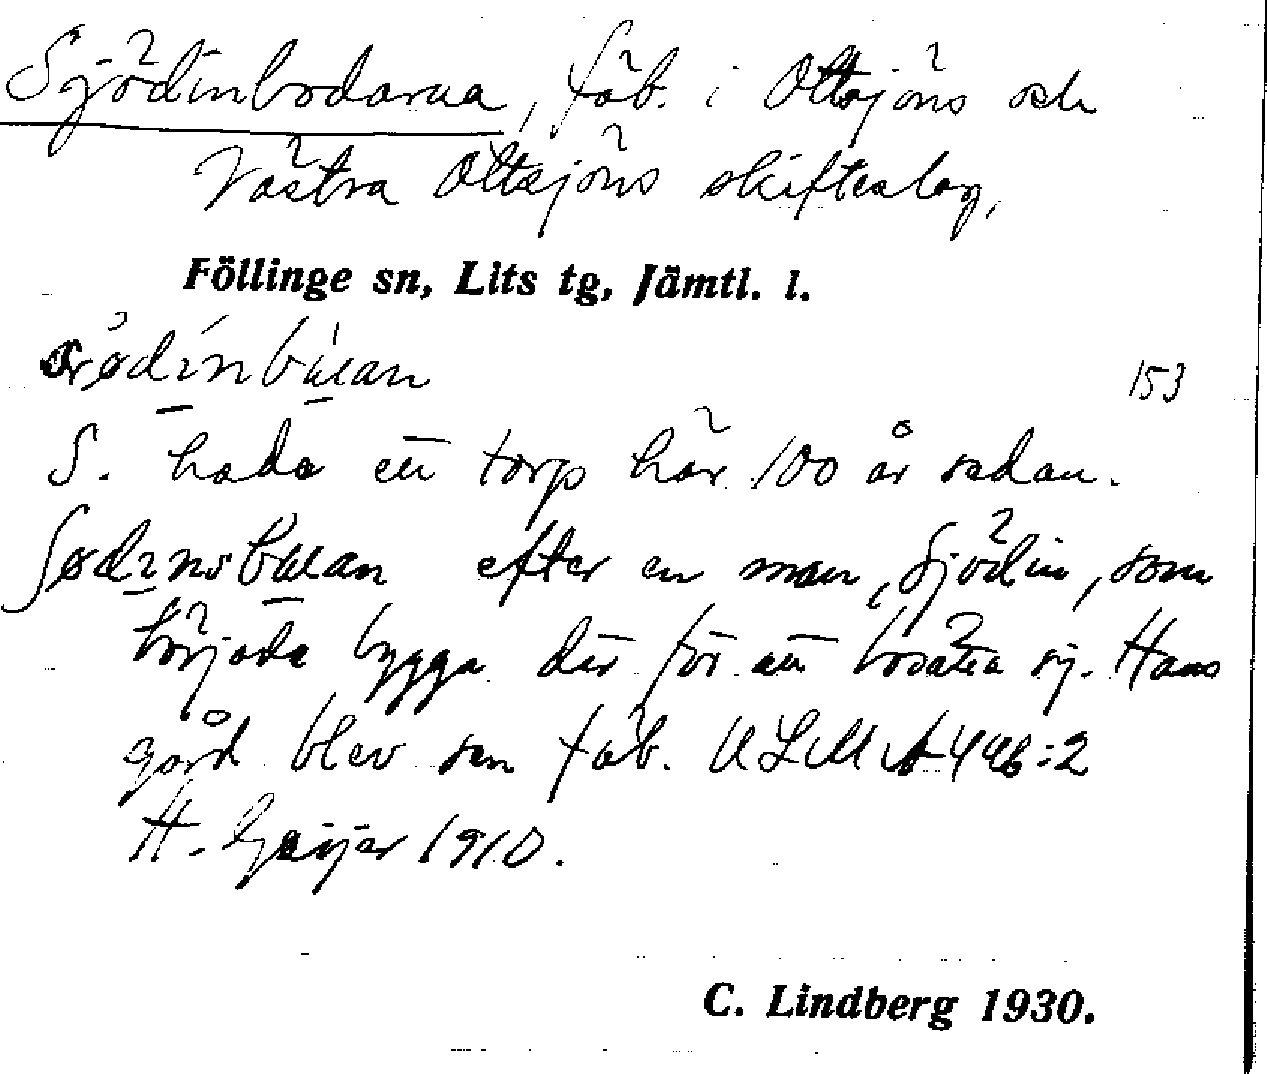 Sjödinbodarna, fäb. i Ottsjöns och
Västra Ottsjöns skifteslag,
Föllinge sn, Lits tg, Jämtl. l.
153
S. hade ett torp här 100 år sedan.
efter en man, Sjödin, som
började bygga där för att bosätta sig. Hans
gård blev sen fäb. ULMA 446:2
H. Geijer 1910.
C. Lindberg 1930.